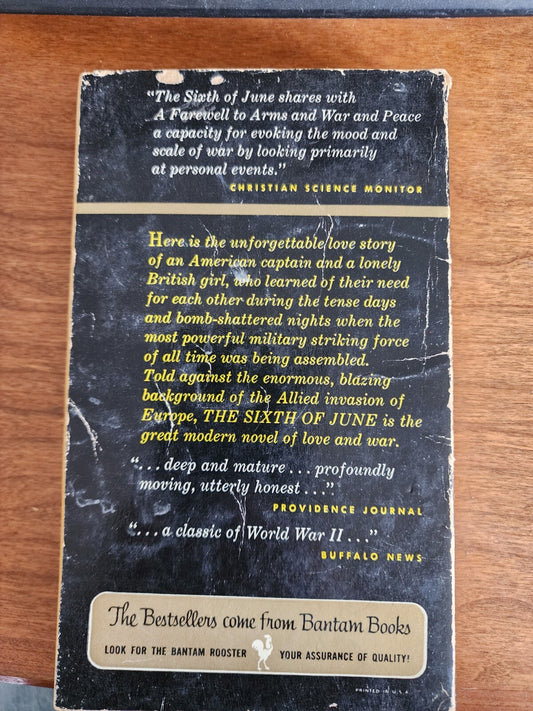 "The Sixth of June shares with
A Farewell to Arms and War and Peace
a capacity for evoking the mood and
scale of war by looking primarily
at personal events."
CHRISTIAN SCIENCE MONITOR
Here is the unforgettable love story
of an American captain and a lonely
British girl, who learned of their need
for each other during the tense days
and bomb-shattered nights when the
most powerful military striking force
of all time was being assembled.
Told against the enormous, blazing
background of the Allied invasion of
Europe, THE SIXTH OF JUNE is the
great modern novel of love and war.
"...deep and mature...profoundly
moving, utterly honest..."
PROVIDENCE JOURNAL
"...a classic of World War II..."
BUFFALO NEWS
The Bestsellers come from Bantam Books
LOOK FOR THE BANTAM ROOSTER YOUR ASSURANCE OF QUALITY!
PRINTED IN U.S.A.